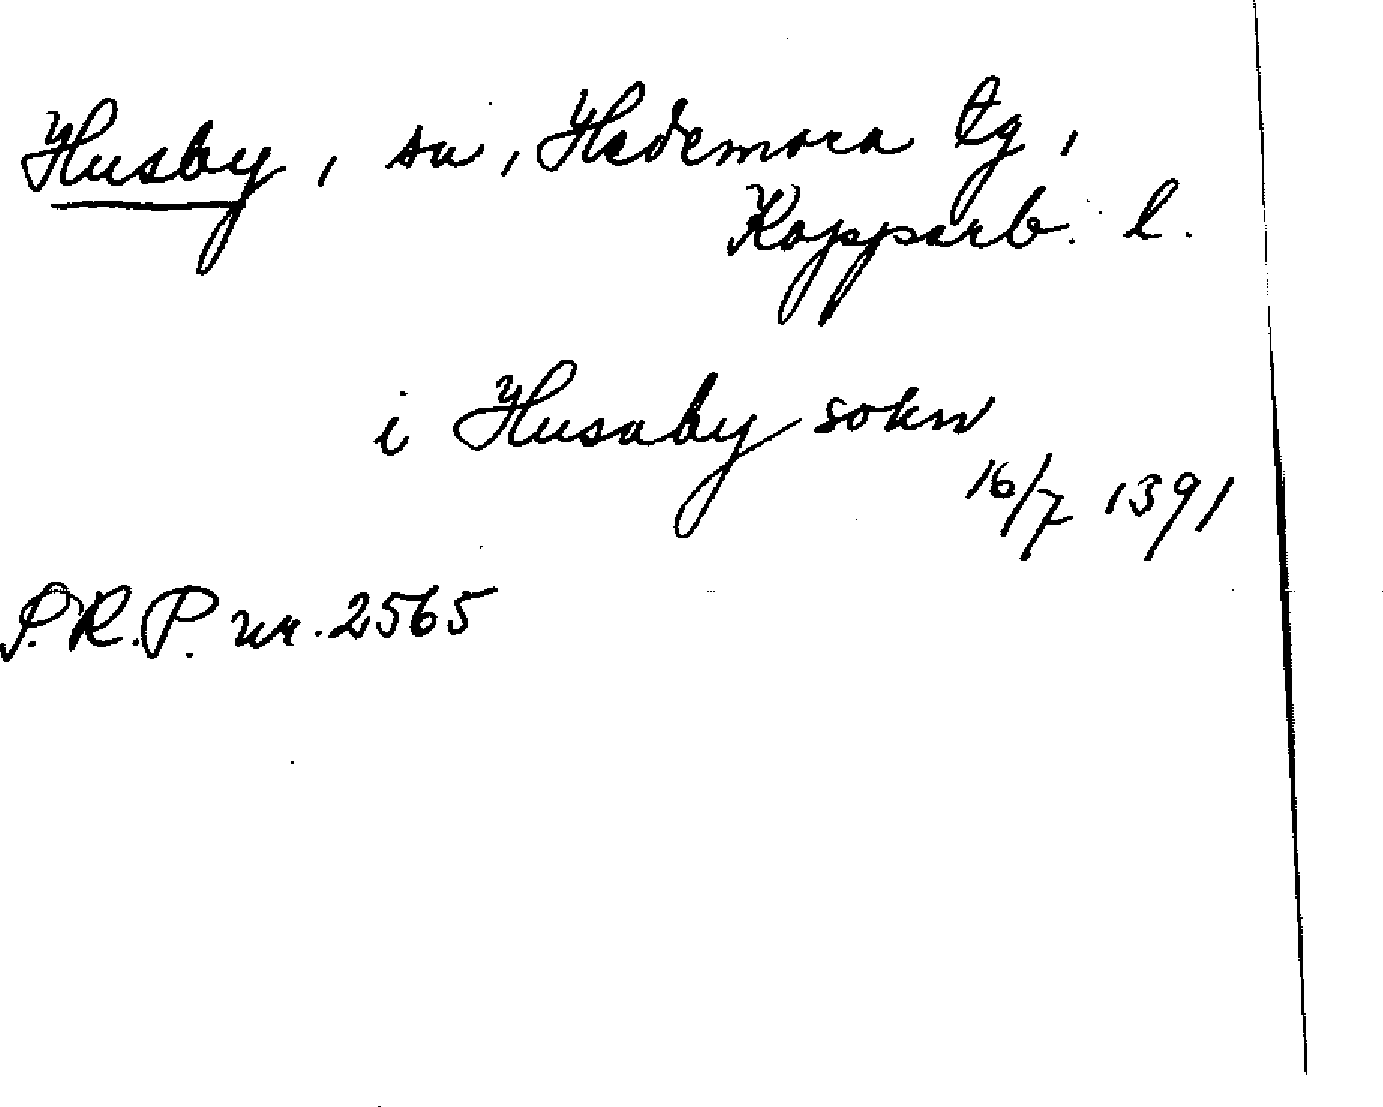 Husby, sn, Hedemora tg,
Kopparb. l.
i Husaby sokn
16/7 1391
S.R.P. nr. 2565